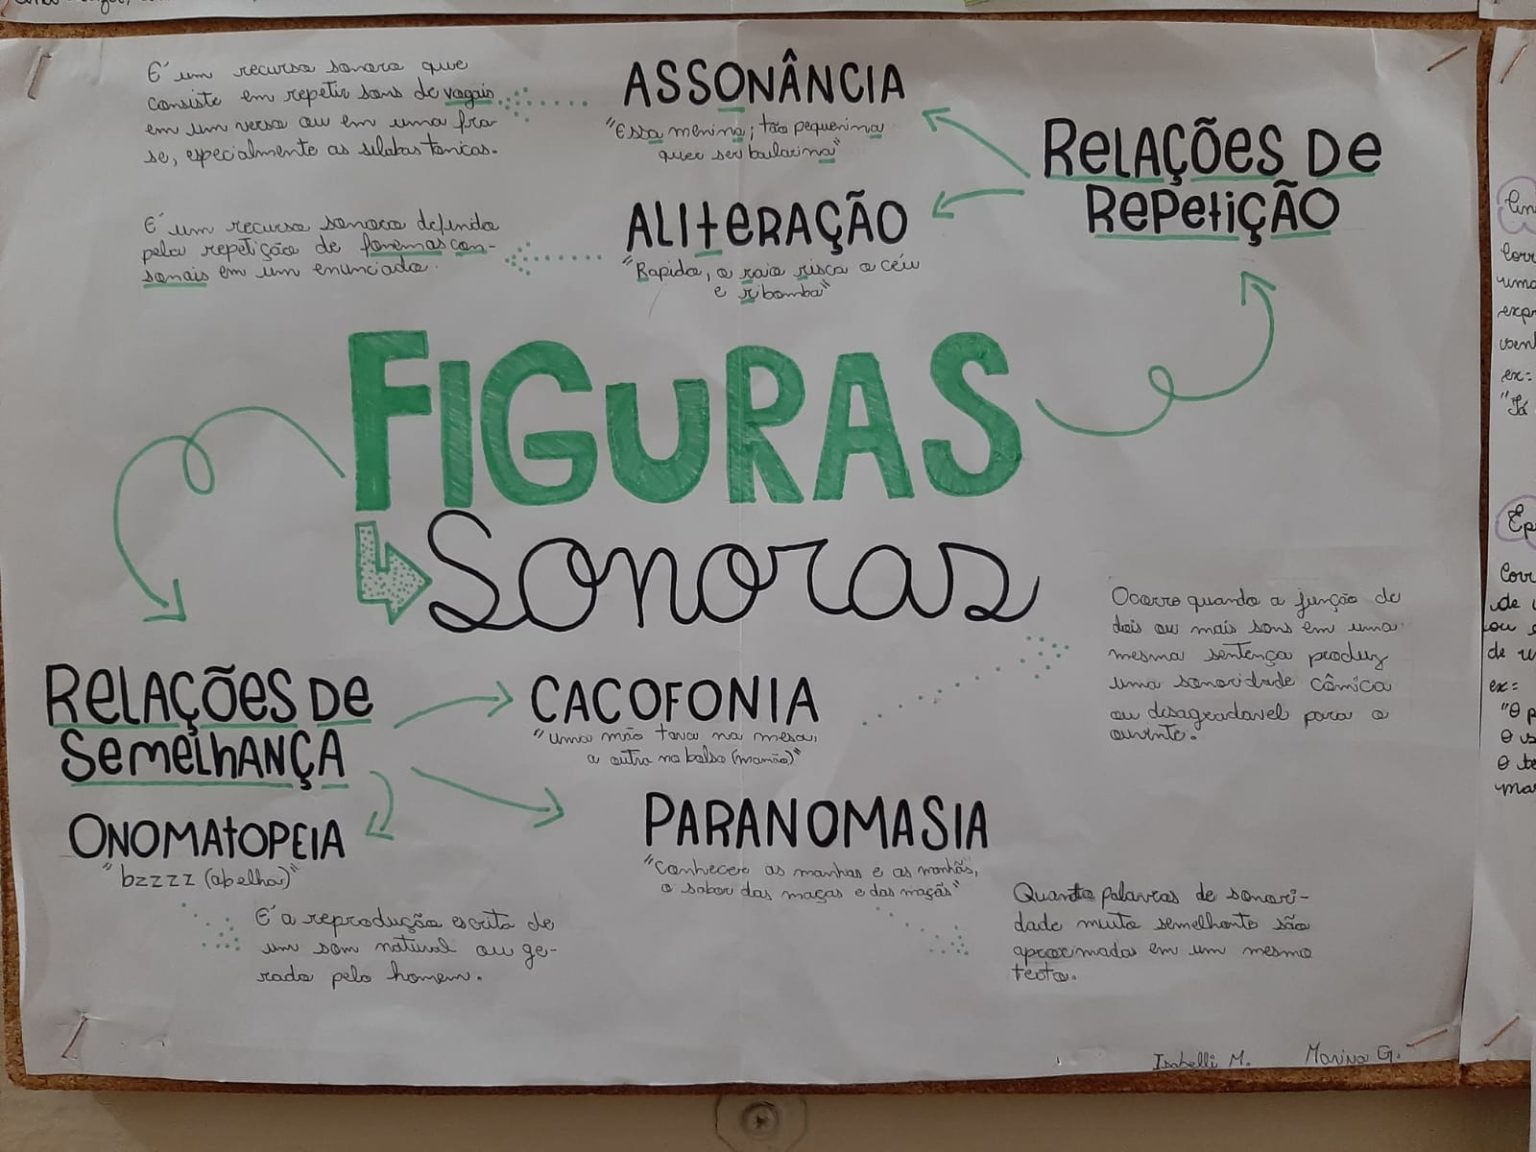 É um recurso sonoro que
consiste em repetir sons de vogais
em um verso ou em uma fra-
se, especialmente as sílabas tônicas.
ASSONÂNCIA
"Essa menina; tão pequenina
quer ser bailarina"
RELAÇÕES DE
REPETIÇÃO
É um recurso sonoro definido
pela repetição de fonemas con-
sonais em um enunciado.
ALITERAÇÃO
"Rapido, o raio risca o céu
e ribomba"
FIGURAS
Sonoras
RELAÇÕES DE
SEMELHANÇA
CACOFONIA
"uma mão tava na mesa,
a outra no bolso (mamão)"
Ocorre quando a função de
dois ou mais sons em uma
mesma sentença produz
uma sonoridade cômica
ou desagradavel para o
ouvinte.
ONOMATOPEIA
"bzzzz (abelha)"
É a reprodução escrita de
um som natural ou ge-
rado pelo homem.
PARANOMASIA
"Conhecer as manhas e as manhãs,
o sabor das maças e das maçãs"
Quanto palavras de sonori-
dade muito semelhante são
aproximadas em um mesmo
texto.
Isabelli M. Marina G.
ex:
"Já
ex:
"O p